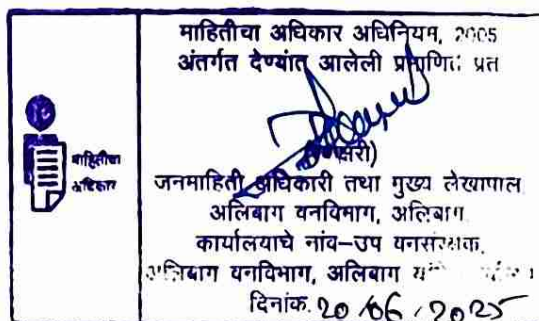 माहितीचा अधिकार अधिनियम, 2005
अंतर्गत देण्यांत आलेली प्रमाणित प्रत
माहितीचा
अधिकार
जनमाहिती अधिकारी तथा मुख्य लेखापाल
अलिबाग वनविभाग, अलिबाग
कार्यालयाचे नांव-उप वनसंरक्षक,
अलिबाग वनविभाग, अलिबाग
दिनांक. 20/06/2025